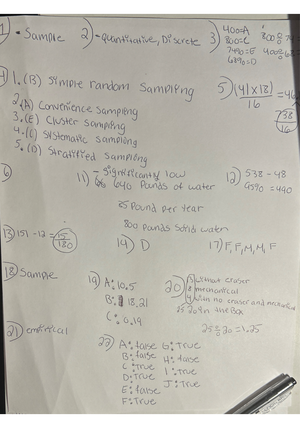 1 - Sample
2) - Quantitative, Discrete
3) 400=A
800=C
4) 1. (B) Simple random Sampling
2. (A) Convenience Sampling
3. (E) Cluster Sampling
4. (C) Systematic Sampling
5. (D) Stratified Sampling
5) (41×18)
16
738
16
6)
11) - Significantly low
640 Pounds of water
25 Pound per year
800 Pounds Solid water
12) 538 - 48
= 490
13) 151 - 12 =
14) D
17) F, F, M, M, F
18) Sample
19) A: 10.5
B: 18.21
C: 0.19
20) 5 without eraser
8 mechanical
4 with no eraser and mechanical
21) empirical
25÷20=1.25
22) A: false G: True
B: false H: false
C: True I: True
D: True J: True
E: false
F: True